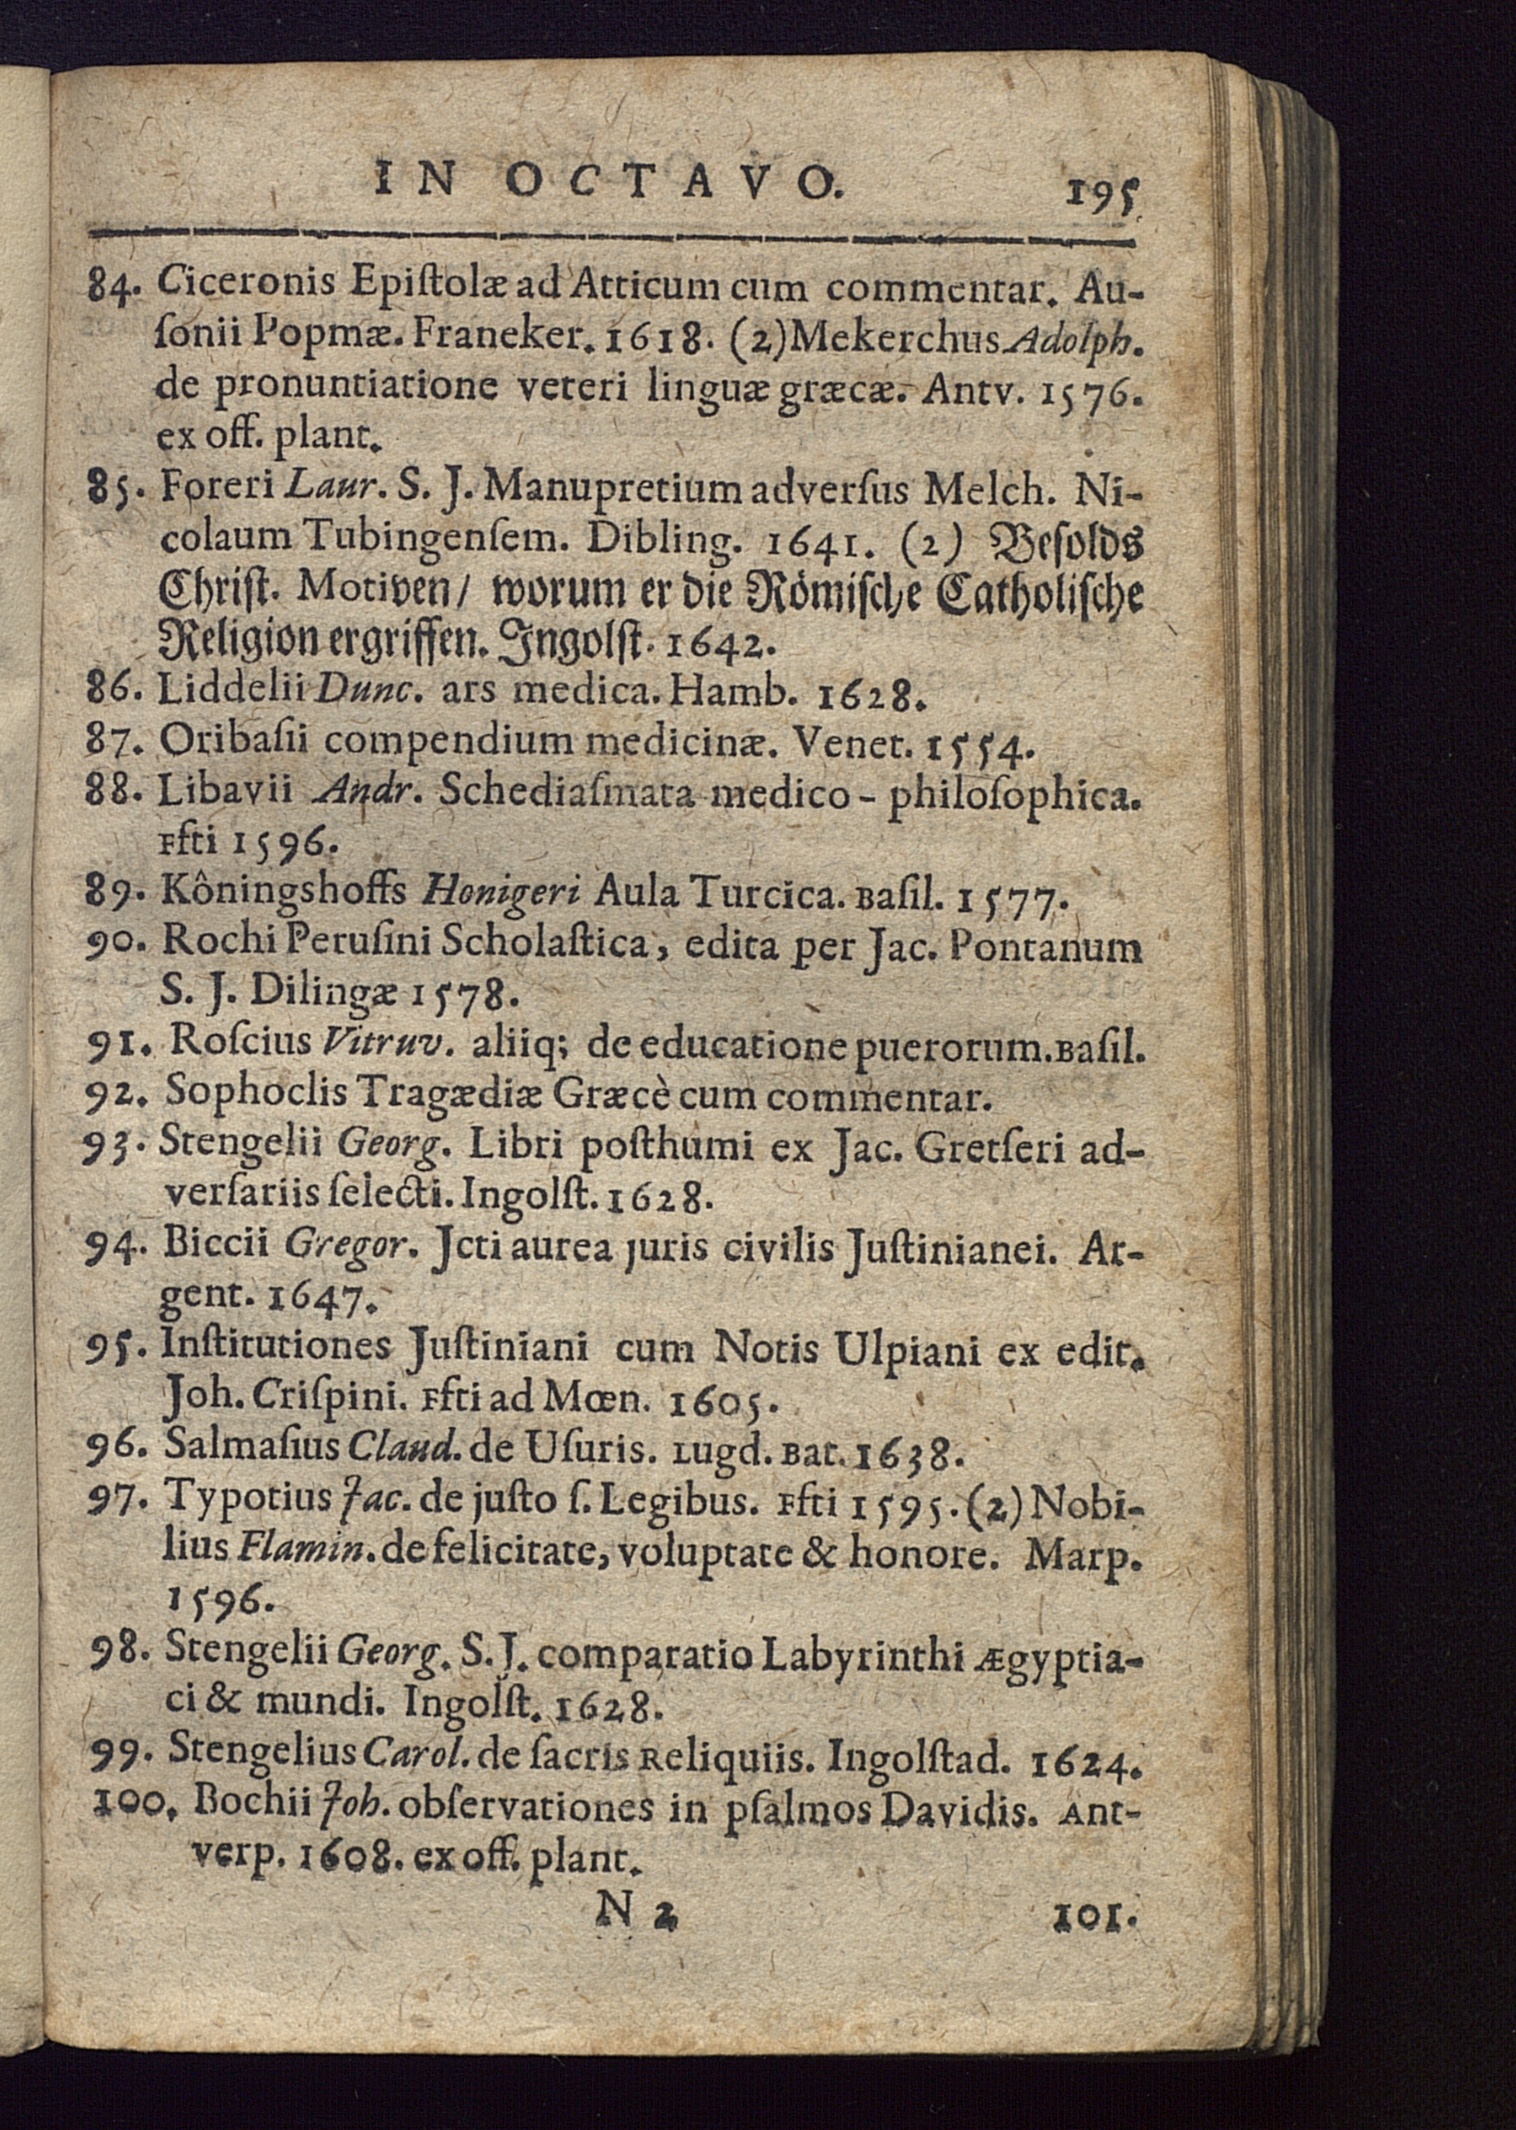 IN OCTAVO. 195
84. Ciceronis Epiſtolæ ad Atticum cum commentar. Au-
ſonii Popmæ. Franeker. 1618. (2) Mekerchus Adolph.
de pronuntiatione veteri linguæ græcæ. Antv. 1576.
ex off. plant.
85. Foreri Laur. S. J. Manupretium adverſus Melch. Ni-
colaum Tubingenſem. Dibling. 1641. (2) Beſolds
Chriſt. Motiven / worum er die Römiſche Catholiſche
Religion ergriffen. Ingolſt. 1642.
86. Liddelii Dunc. ars medica. Hamb. 1628.
87. Oribaſii compendium medicinæ. Venet. 1554.
88. Libavii Andr. Schediaſmata medico - philoſophica.
Ffti 1596.
89. Kôningshoffs Honigeri Aula Turcica. Baſil. 1577.
90. Rochi Peruſini Scholaſtica, edita per Jac. Pontanum
S. J. Dilingæ 1578.
91. Roſcius Vitruv. aliiq; de educatione puerorum. Baſil.
92. Sophoclis Tragædiæ Græcè cum commentar.
93. Stengelii Georg. Libri poſthumi ex Jac. Gretſeri ad-
verſariis ſelecti. Ingolſt. 1628.
94. Biccii Gregor. Jcti aurea juris civilis Juſtinianei. Ar-
gent. 1647.
95. Inſtitutiones Juſtiniani cum Notis Ulpiani ex edit.
Joh. Criſpini. Ffti ad Mœn. 1605.
96. Salmaſius Claud. de Uſuris. Lugd. Bat. 1638.
97. Typotius Jac. de juſto ſ. Legibus. Ffti 1595. (2) Nobi-
lius Flamin. de felicitate, voluptate & honore. Marp.
1596.
98. Stengelii Georg. S. J. comparatio Labyrinthi Ægyptia-
ci & mundi. Ingolſt. 1628.
99. Stengelius Carol. de ſacris Reliquiis. Ingolſtad. 1624.
100. Bochii Joh. obſervationes in pſalmos Davidis. Ant-
verp. 1608. ex off. plant.
N 2 101.